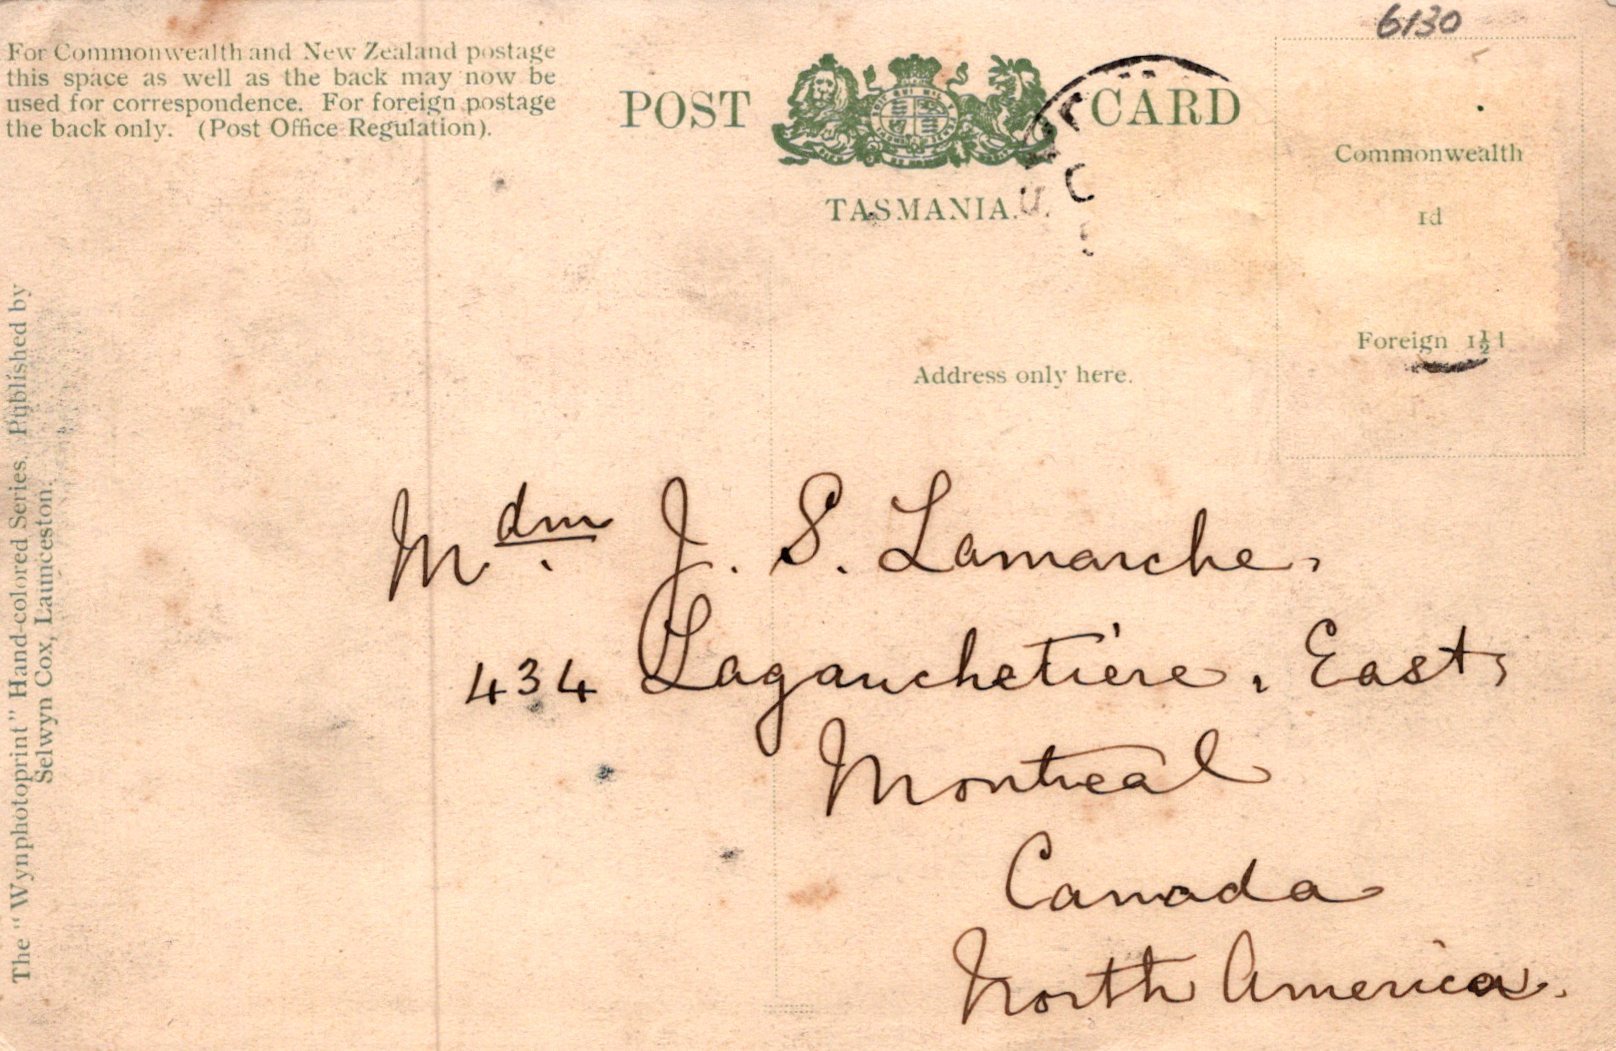 6130
For Commonwealth and New Zealand postage
this space as well as the back may now be
used for correspondence. For foreign postage
the back only. (Post Office Regulation).
POST CARD
TASMANIA.
Commonwealth
1d
Foreign 1½d
Address only here.
Mdm J. S. Lamarche,
434 Lagauchetière, East,
Montreal
Canada
North America.
The "Wynphotoprint" Hand-colored Series. Published by
Selwyn Cox, Launceston.